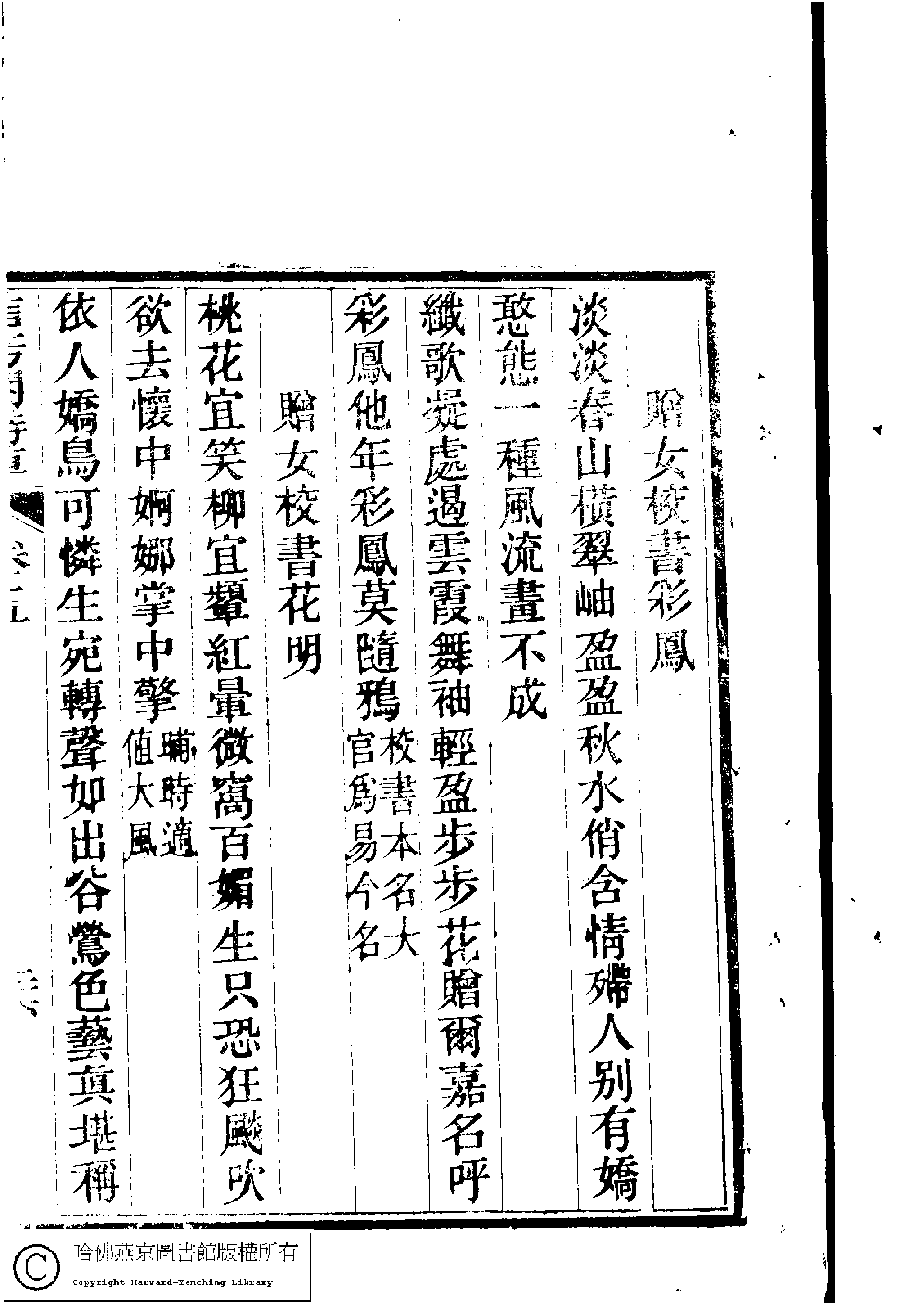 贈女校書彩鳳
淡淡春山橫翠岫盈盈秋水俏含情殢人别有嬌
憨態一種風流畫不成
纖歌凝處遏雲霞舞袖輕盈步步花贈爾嘉名呼
彩鳳他年彩鳳莫隨鴉校書本名大官爲易今名
贈女校書花明
桃花宜笑柳宜顰紅暈微窩百媚生只恐狂颷吹
欲去懷中婀娜掌中擎晡時適值大風
依人嬌鳥可憐生宛轉聲如出谷鶯色藝真堪稱
卷五
哈佛燕京圖書館版權所有
Copyright Harvard-Yenching Library